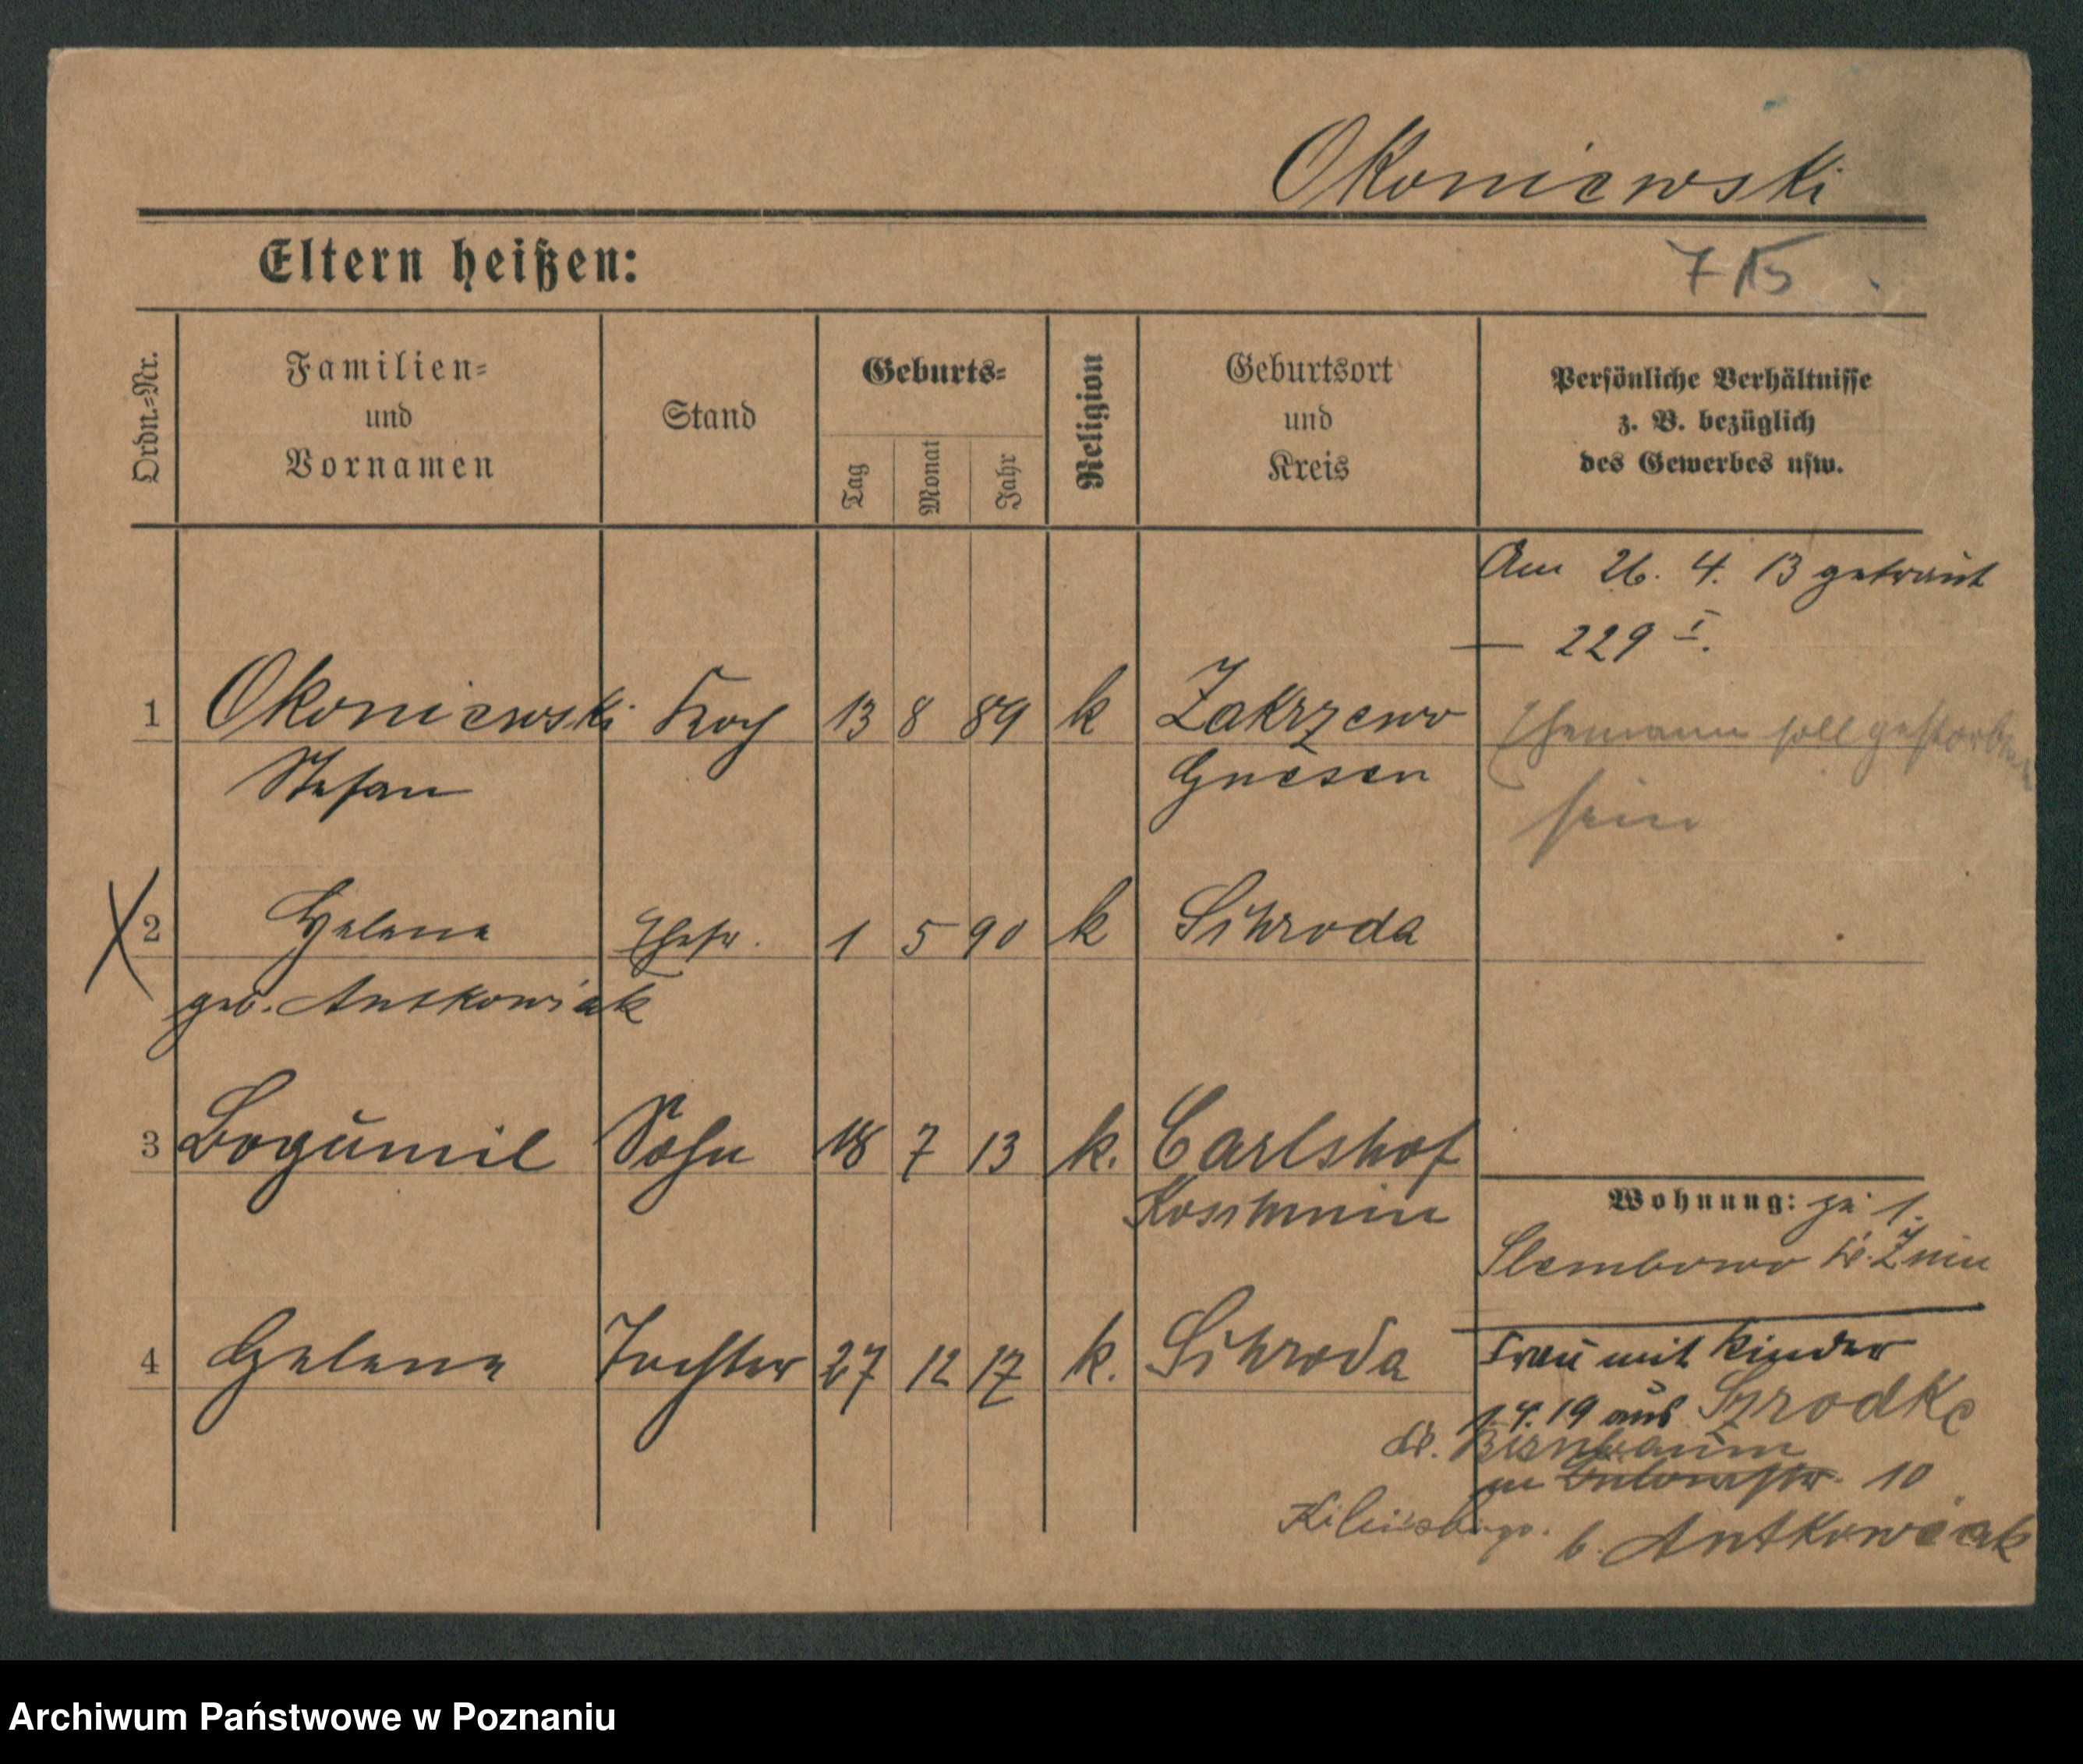 Okoniewski
Eltern heißen:
715
Ordn.=Nr.
Familien=
und
Vornamen
Stand
Geburts=
Tag
Monat
Jahr
Religion
Geburtsort
und
Kreis
Persönliche Verhältnisse
z. B. bezüglich
des Gewerbes usw.
Am 26. 4. 13 getraut
— 229 I.
1 Okoniewski Koch 13 8 89 k Zakrzewo
Stefan Gnesen
Ehemann soll gestorben
sein
2 Helene Ehefr. 1 5 90 k Schroda
geb. Antkowiak
3 Bogumil Sohn 18 7 13 k. Carlshof
Koschmin
Wohnung: zu 1.
Slembowo Kr. Znin
4 Helene Tochter 27 12 17 k. Schroda
Frau mit Kinder
1. 4. 19 aus Szrodke
Kr. Birnbaum
10
b. Antkowiak
Archiwum Państwowe w Poznaniu